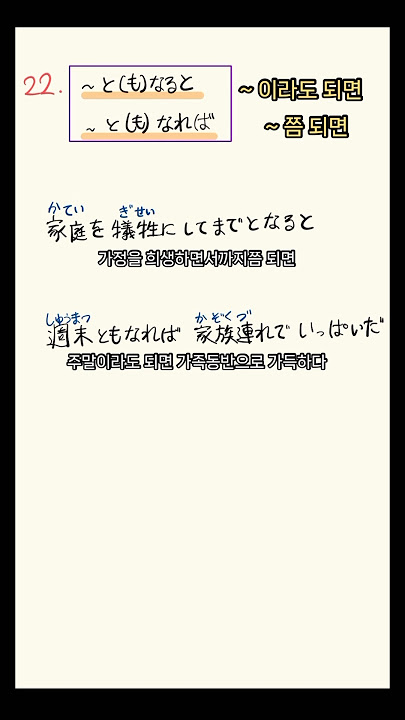 22.
~と(も)なると
~이라도 되면
~と(も)なれば
~쯤 되면
かてい ぎせい
家庭を犠牲にしてまでとなると
가정을 희생하면서까지쯤 되면
しゅうまつ かぞくづ
週末ともなれば 家族連れで いっぱいだ
주말이라도 되면 가족동반으로 가득하다